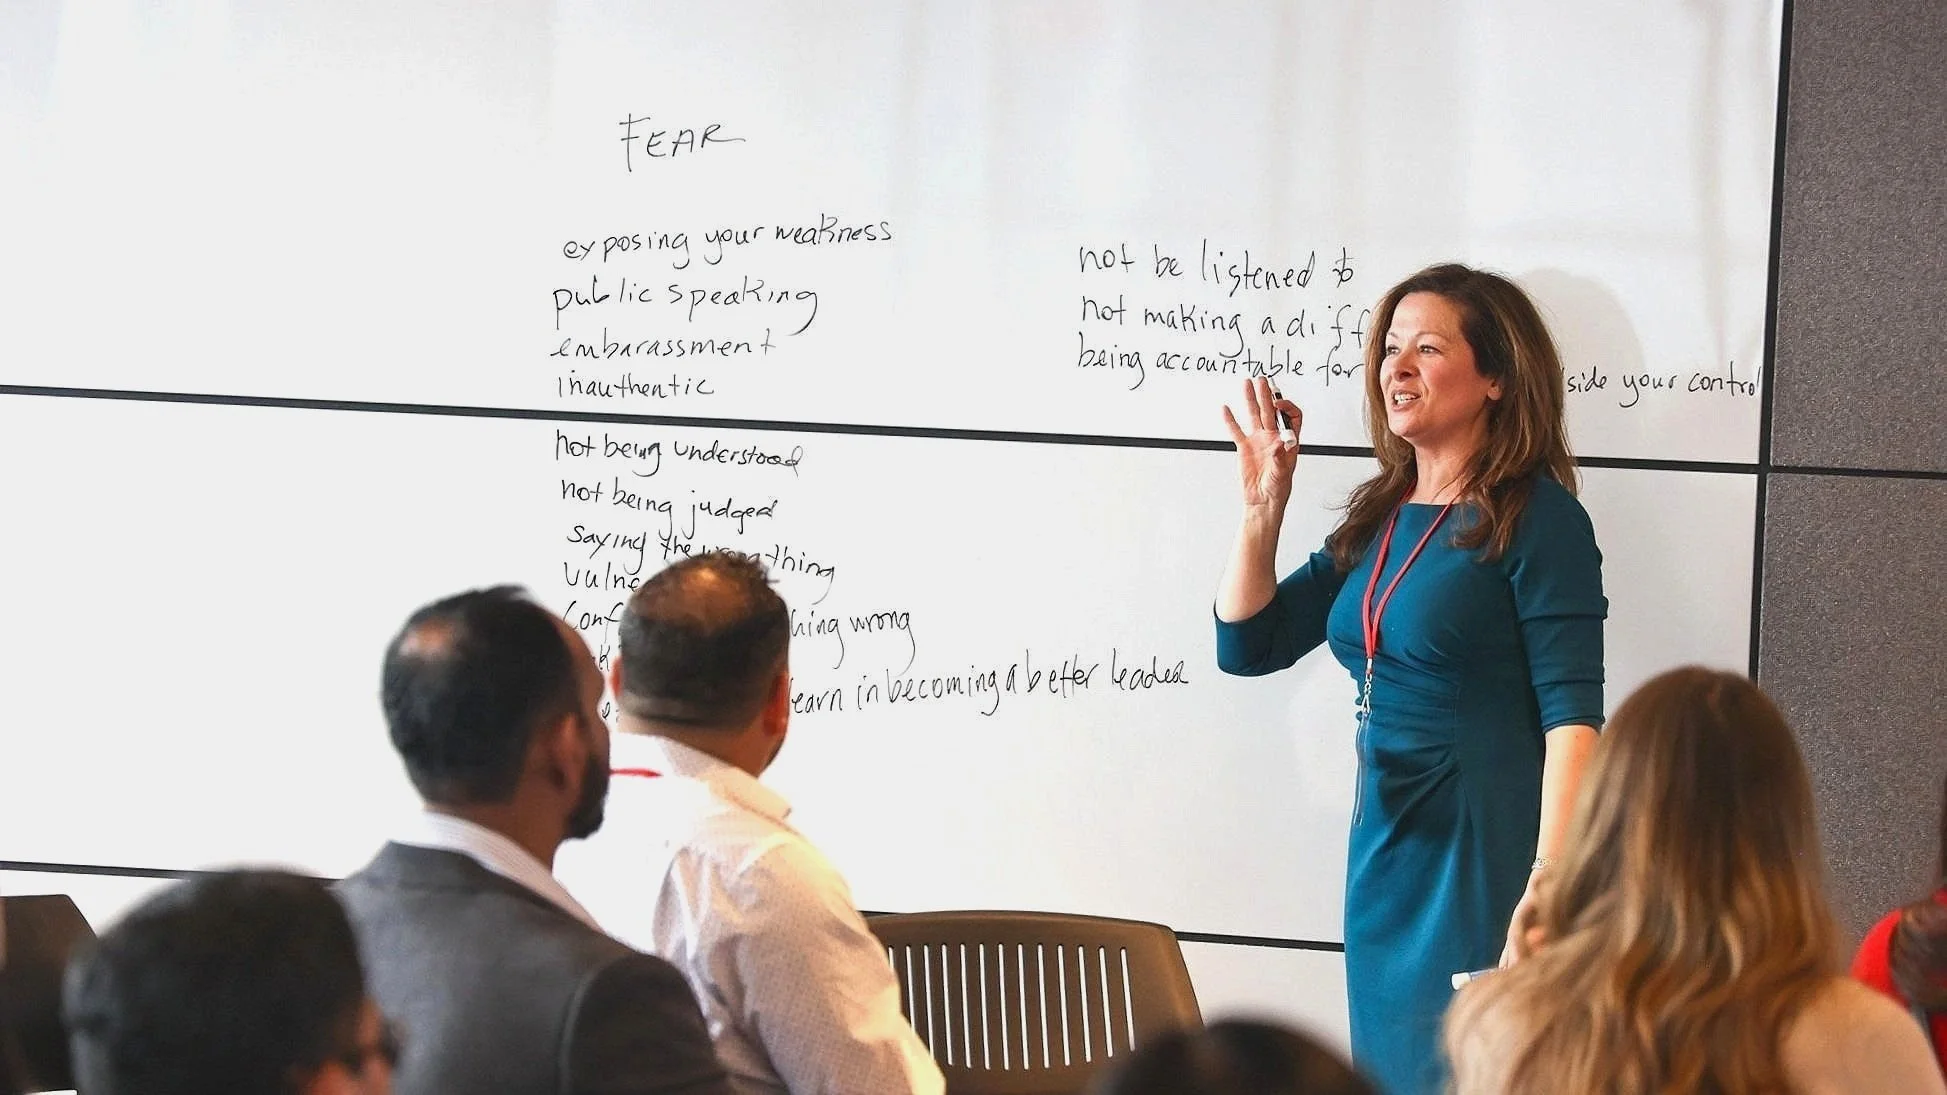 FEAR
exposing your weakness
public speaking
embarassment
inauthentic
not being understood
not being judged
saying the wrong thing
wrong
learn in becoming a better leader
not be listened to
not making a
being accountable for your control